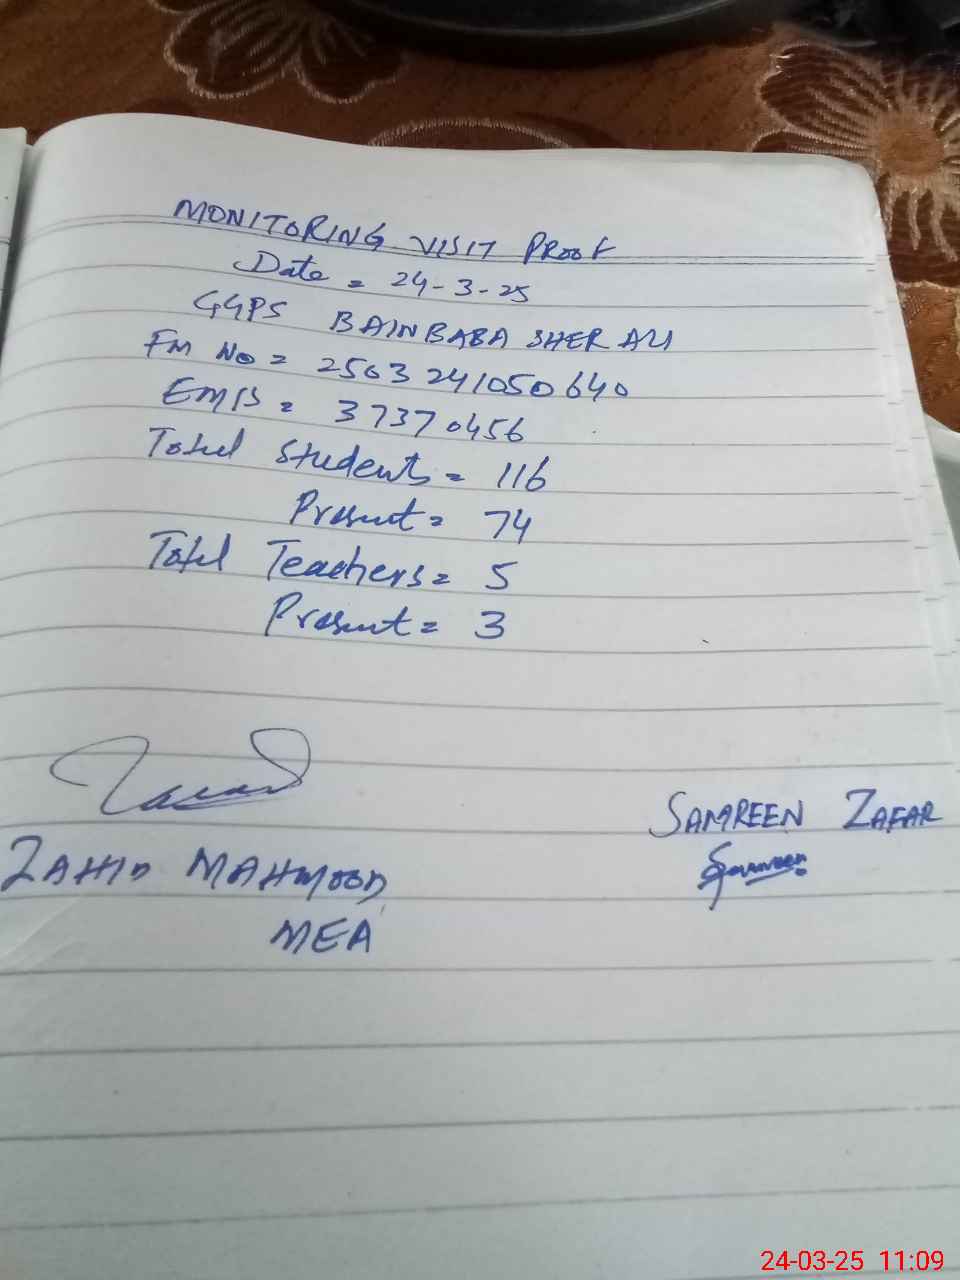 MONITORING VISIT PROOF
Date = 24-3-25
GGPS BAINBABA SHER ALI
FM No = 2503241050640
EMIS = 37370456
Total Students = 116
Present = 74
Total Teachers = 5
Present = 3
SAMREEN ZAFAR
Samreen
ZAHID MAHMOOD
MEA
24-03-25 11:09